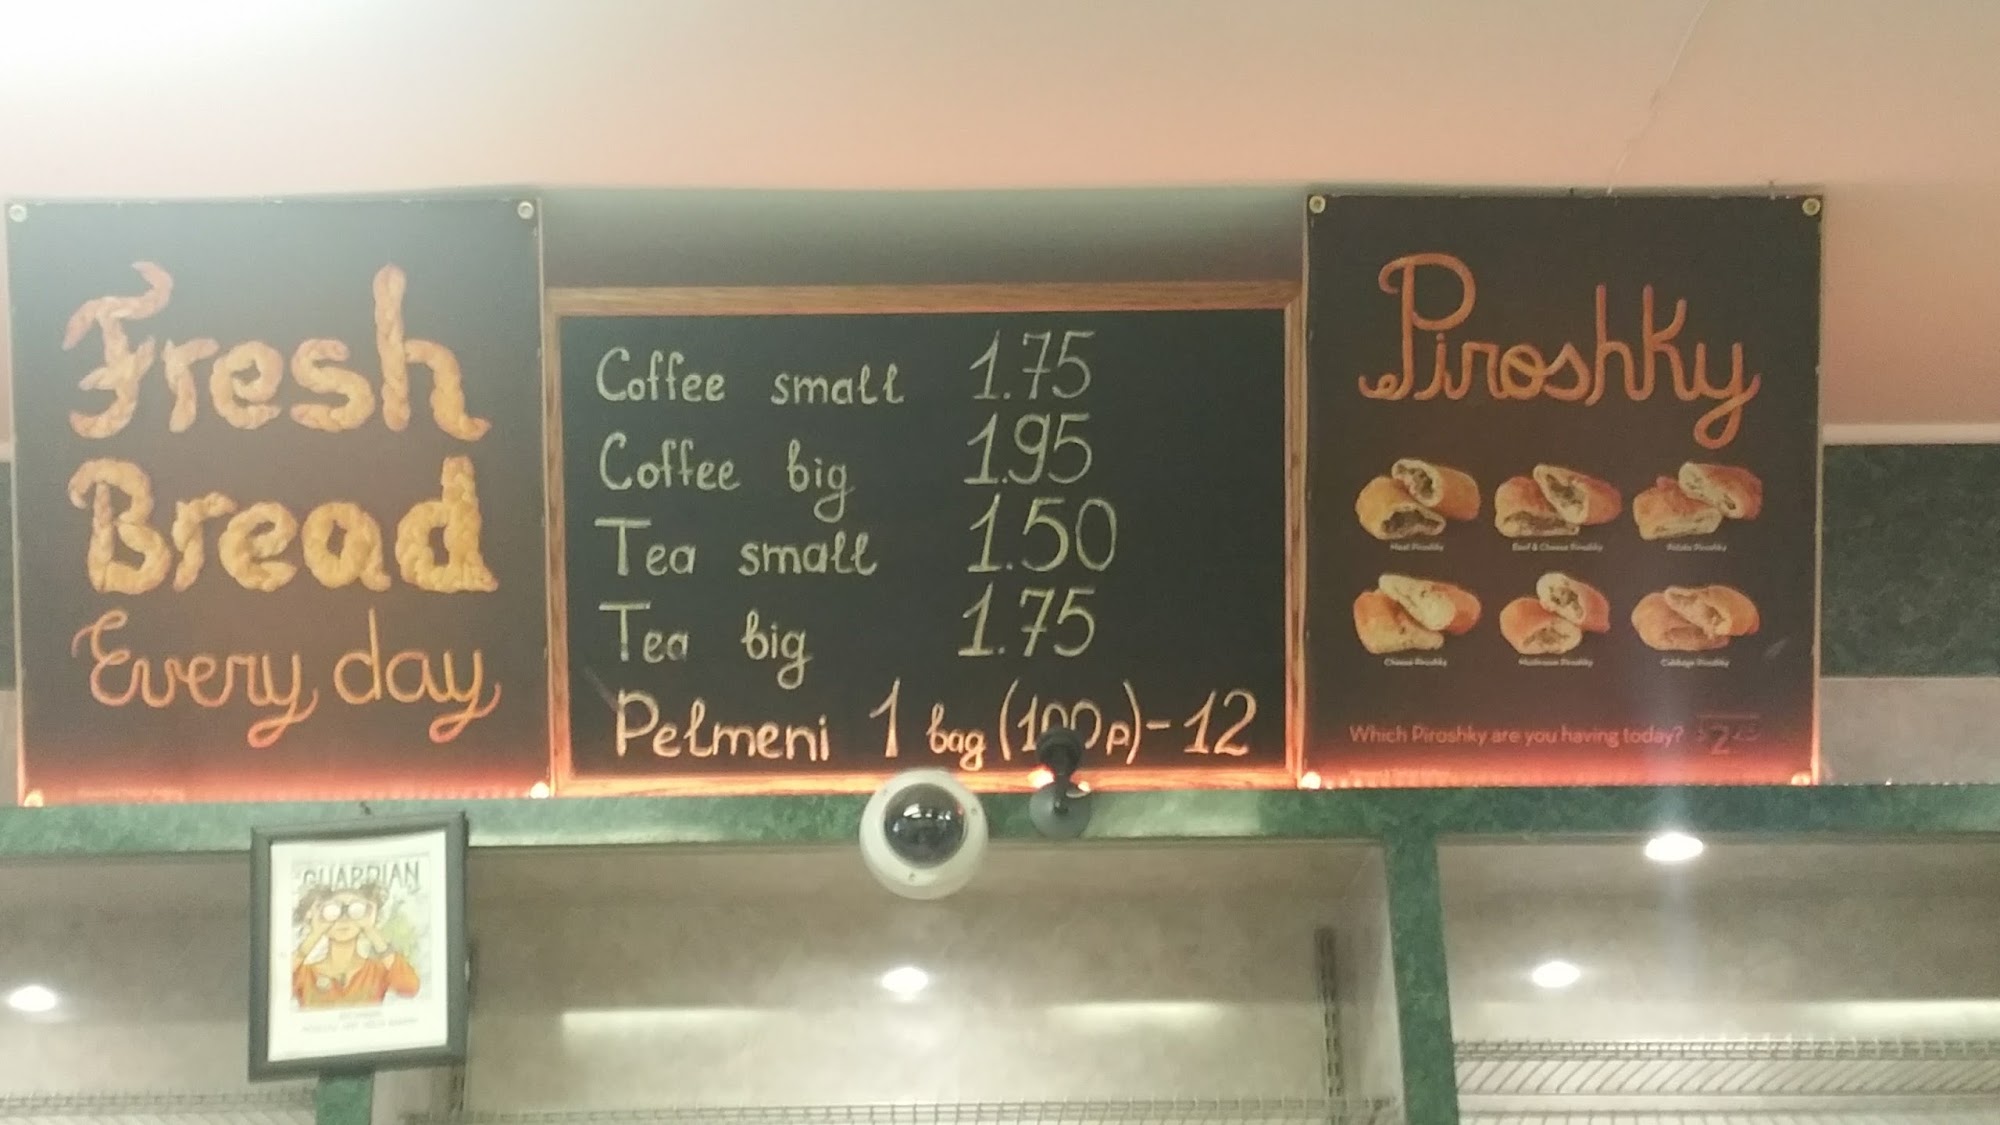 Fresh
Bread
Every day
Coffee small 1.75
Coffee big 1.95
Tea small 1.50
Tea big 1.75
Pelmeni 1 bag (100p)-12
Piroshky
Meat Piroshky
Beef & Cheese Piroshky
Potato Piroshky
Cheese Piroshky
Mushroom Piroshky
Cabbage Piroshky
Which Piroshky are you having today? $2.25
GUARDIAN